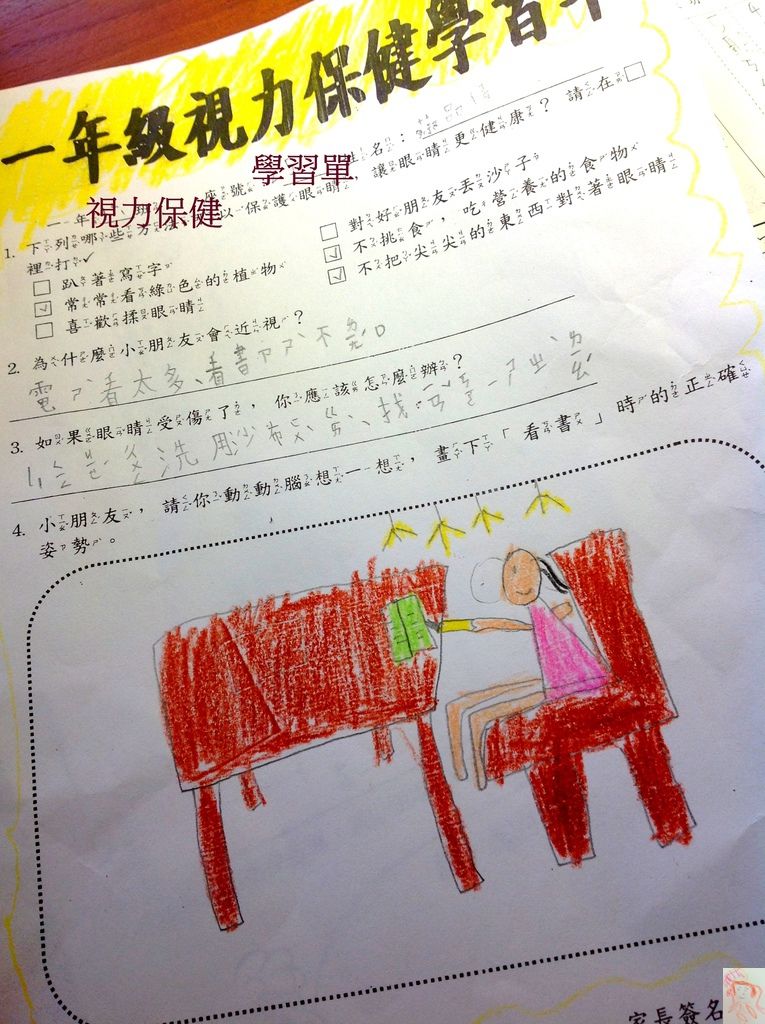 一年級視力保健學習單
學習單
視力保健
姓名：
1. 下列哪些方法可以保護眼睛，讓眼睛更健康？請在□
裡打✓
□ 趴著寫字
☑ 常常看綠色的植物
□ 喜歡揉眼睛
□ 對好朋友丟沙子
☑ 不挑食，吃營養的食物
☑ 不把尖尖的東西對著眼睛
2. 為什麼小朋友會近視？
電ㄕˋ看太多、看書ㄗㄕˋ不
3. 如果眼睛受傷了，你應該怎麼辦？
4. 小朋友，請你動動腦想一想，畫下「看書」時的正確
姿勢。
家長簽名